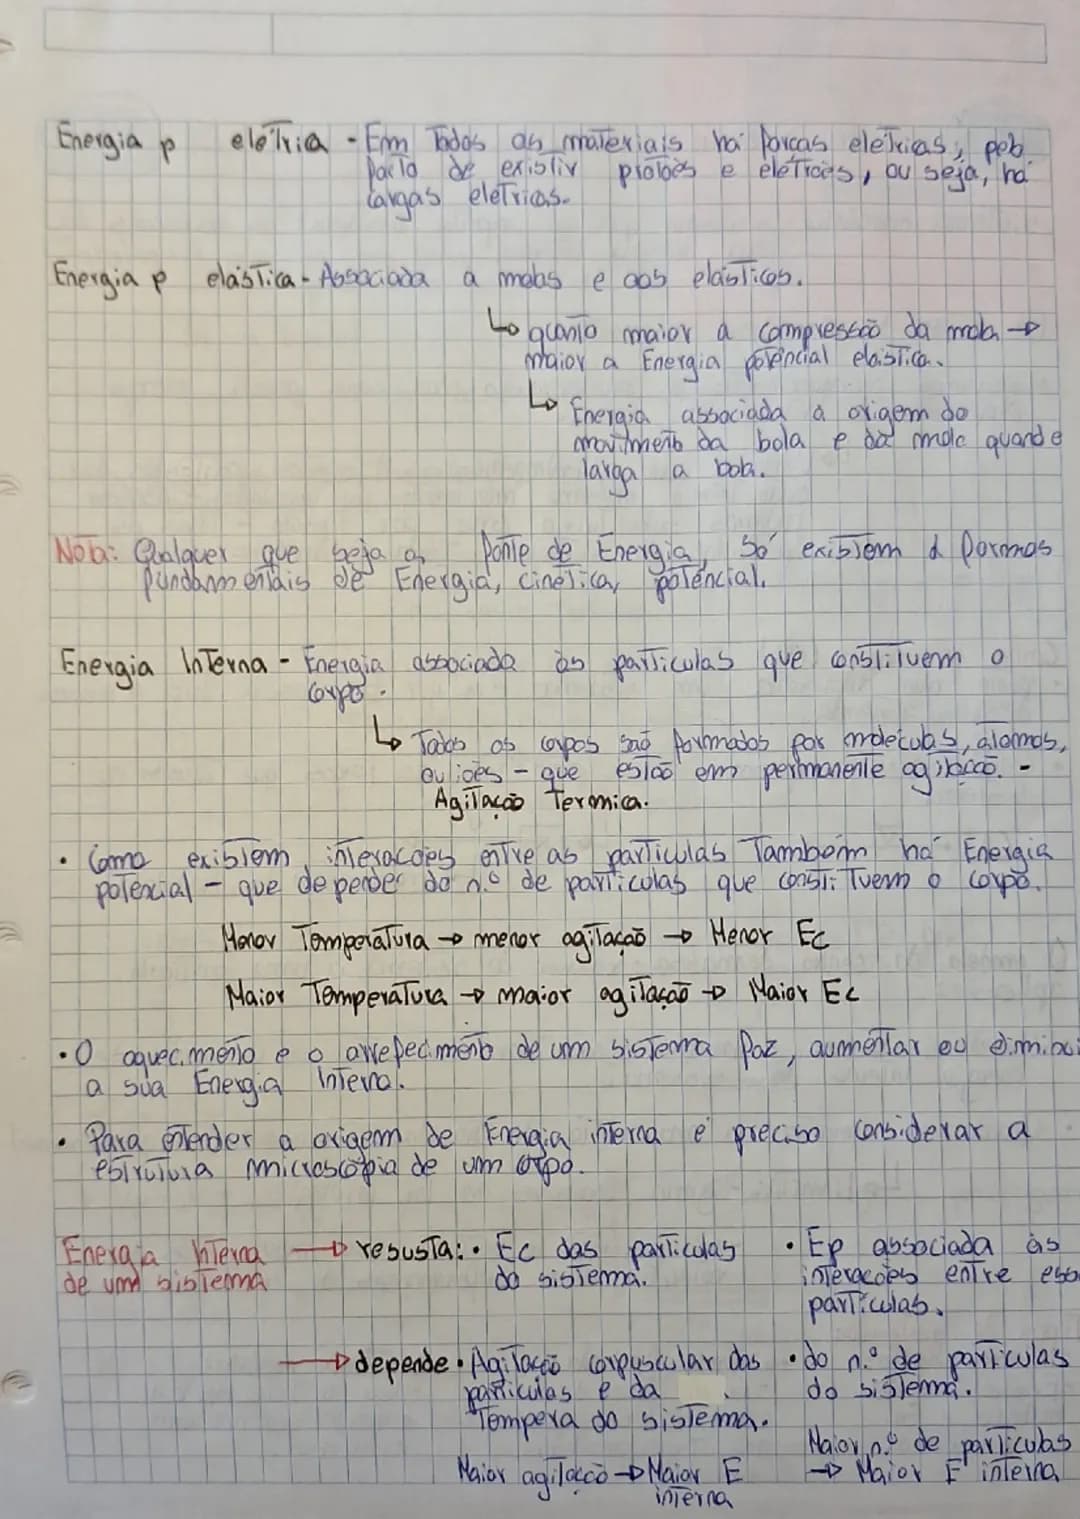 Energia p elétria - Em Todos os materiais há forças elétricas, pelo
facto de existir protões e eletrões, ou seja, há
cargas eletricas.
Energia p elástica - Associada a molas e aos elásticos.
↳ quanto maior a compressão da mola →
maior a Energia potêncial elástica.
↳ Energia associada a origem do
movimento da bola e da mola quando
larga a bola.
Nota: Qualquer que seja a fonte de Energia, só existem 2 formas
fundamentais de Energia, cinética, potêncial.
Energia Interna - Energia associada às particulas que constituem o
corpo.
↳ Todos os corpos são formados por moleculas, átomos,
ou iões - que estão em permanente agitação. -
Agitação Termica.
• Como existem interacões entre as particulas Também há Energia
potencial - que depende do n.º de particulas que constituem o corpo.
Menor Temperatura → menor agitação → Menor Ec
Maior Temperatura → maior agitação → Maior Ec
• O aquecimento e o arrefecimento de um sistema faz, aumentar ou diminui
a sua Energia Interna.
• Para entender a origem de Energia interna é preciso considerar a
estrutura microscópia de um corpo.
Energia Interna → resusta: • Ec das particulas • Ep associada às
de um sistema do sistema. interacões entre essa
particulas.
→ depende • Agitação corpuscular das • do n.º de particulas
particulas e da do sistema.
Tempera do sistema.
Maior n.º de particulas
Maior agitação → Maior E → Maior E interna
interna